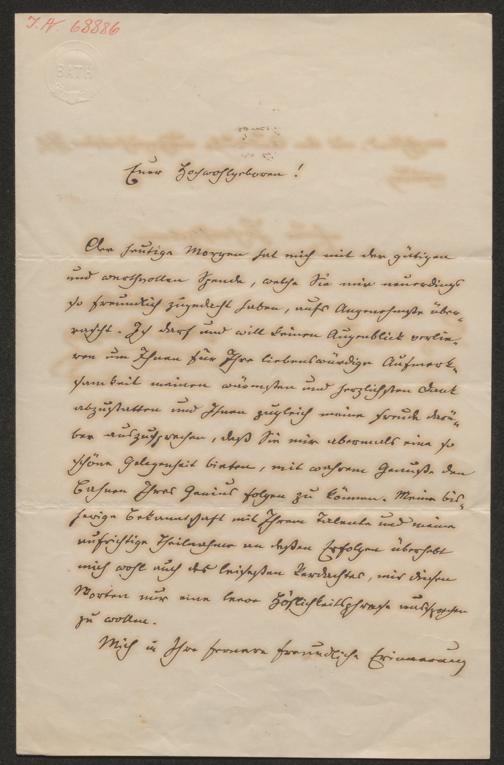 I. N. 68886
BATH
Euer Hochwohlgeboren!
Der heutige Morgen hat mich mit der gütigen
und werthvollen Spende, welche Sie mir neuerdings
so freundlich zugedacht haben, aufs Angenehmste über-
rascht. Ich darf und will keinen Augenblick verlie-
ren um Ihnen für Ihre liebenswürdige Aufmerk-
samkeit meinen wärmsten und herzlichsten Dank
abzustatten und Ihnen zugleich meine Freude darü-
ber auszusprechen, daß Sie mir abermals eine so
schöne Gelegenheit bieten, mit wahrem Genuße den
Bahnen Ihres Genius folgen zu können. Meine bis-
herige Bekanntschaft mit Ihrem Talente und meine
aufrichtige Theilnahme an deßen Erfolgen überhebt
mich wohl auch des leisesten Verdachtes, mit diesen
Worten nur eine leere Höflichkeitsphrase aussprechen
zu wollen.
Mich in Ihre fernere freundliche Erinnerung